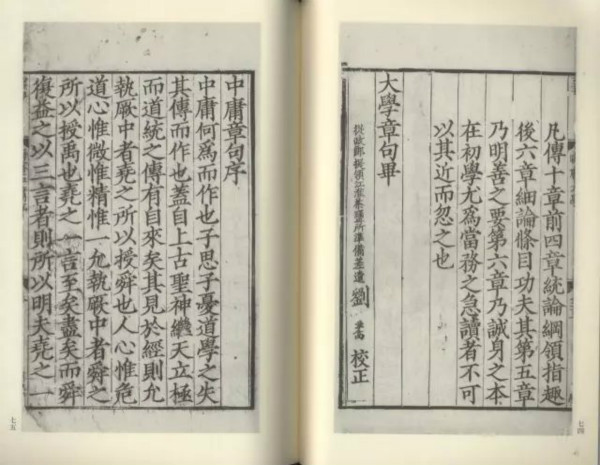 凡傳十章前四章統論綱領指趣
後六章細論條目功夫其第五章
乃明善之要第六章乃誠身之本
在初學尤爲當務之急讀者不可
以其近而忽之也
大學章句畢
從政郎提領江淮茶鹽所準備差遣劉 校正
七四
中庸章句序
中庸何爲而作也子思子憂道學之失
其傳而作也蓋自上古聖神繼天立極
而道統之傳有自來矣其見於經則允
執厥中者堯之所以授舜也人心惟危
道心惟微惟精惟一允執厥中者舜之
所以授禹也堯之一言至矣盡矣而舜
復益之以三言者則所以明夫堯之一
七五